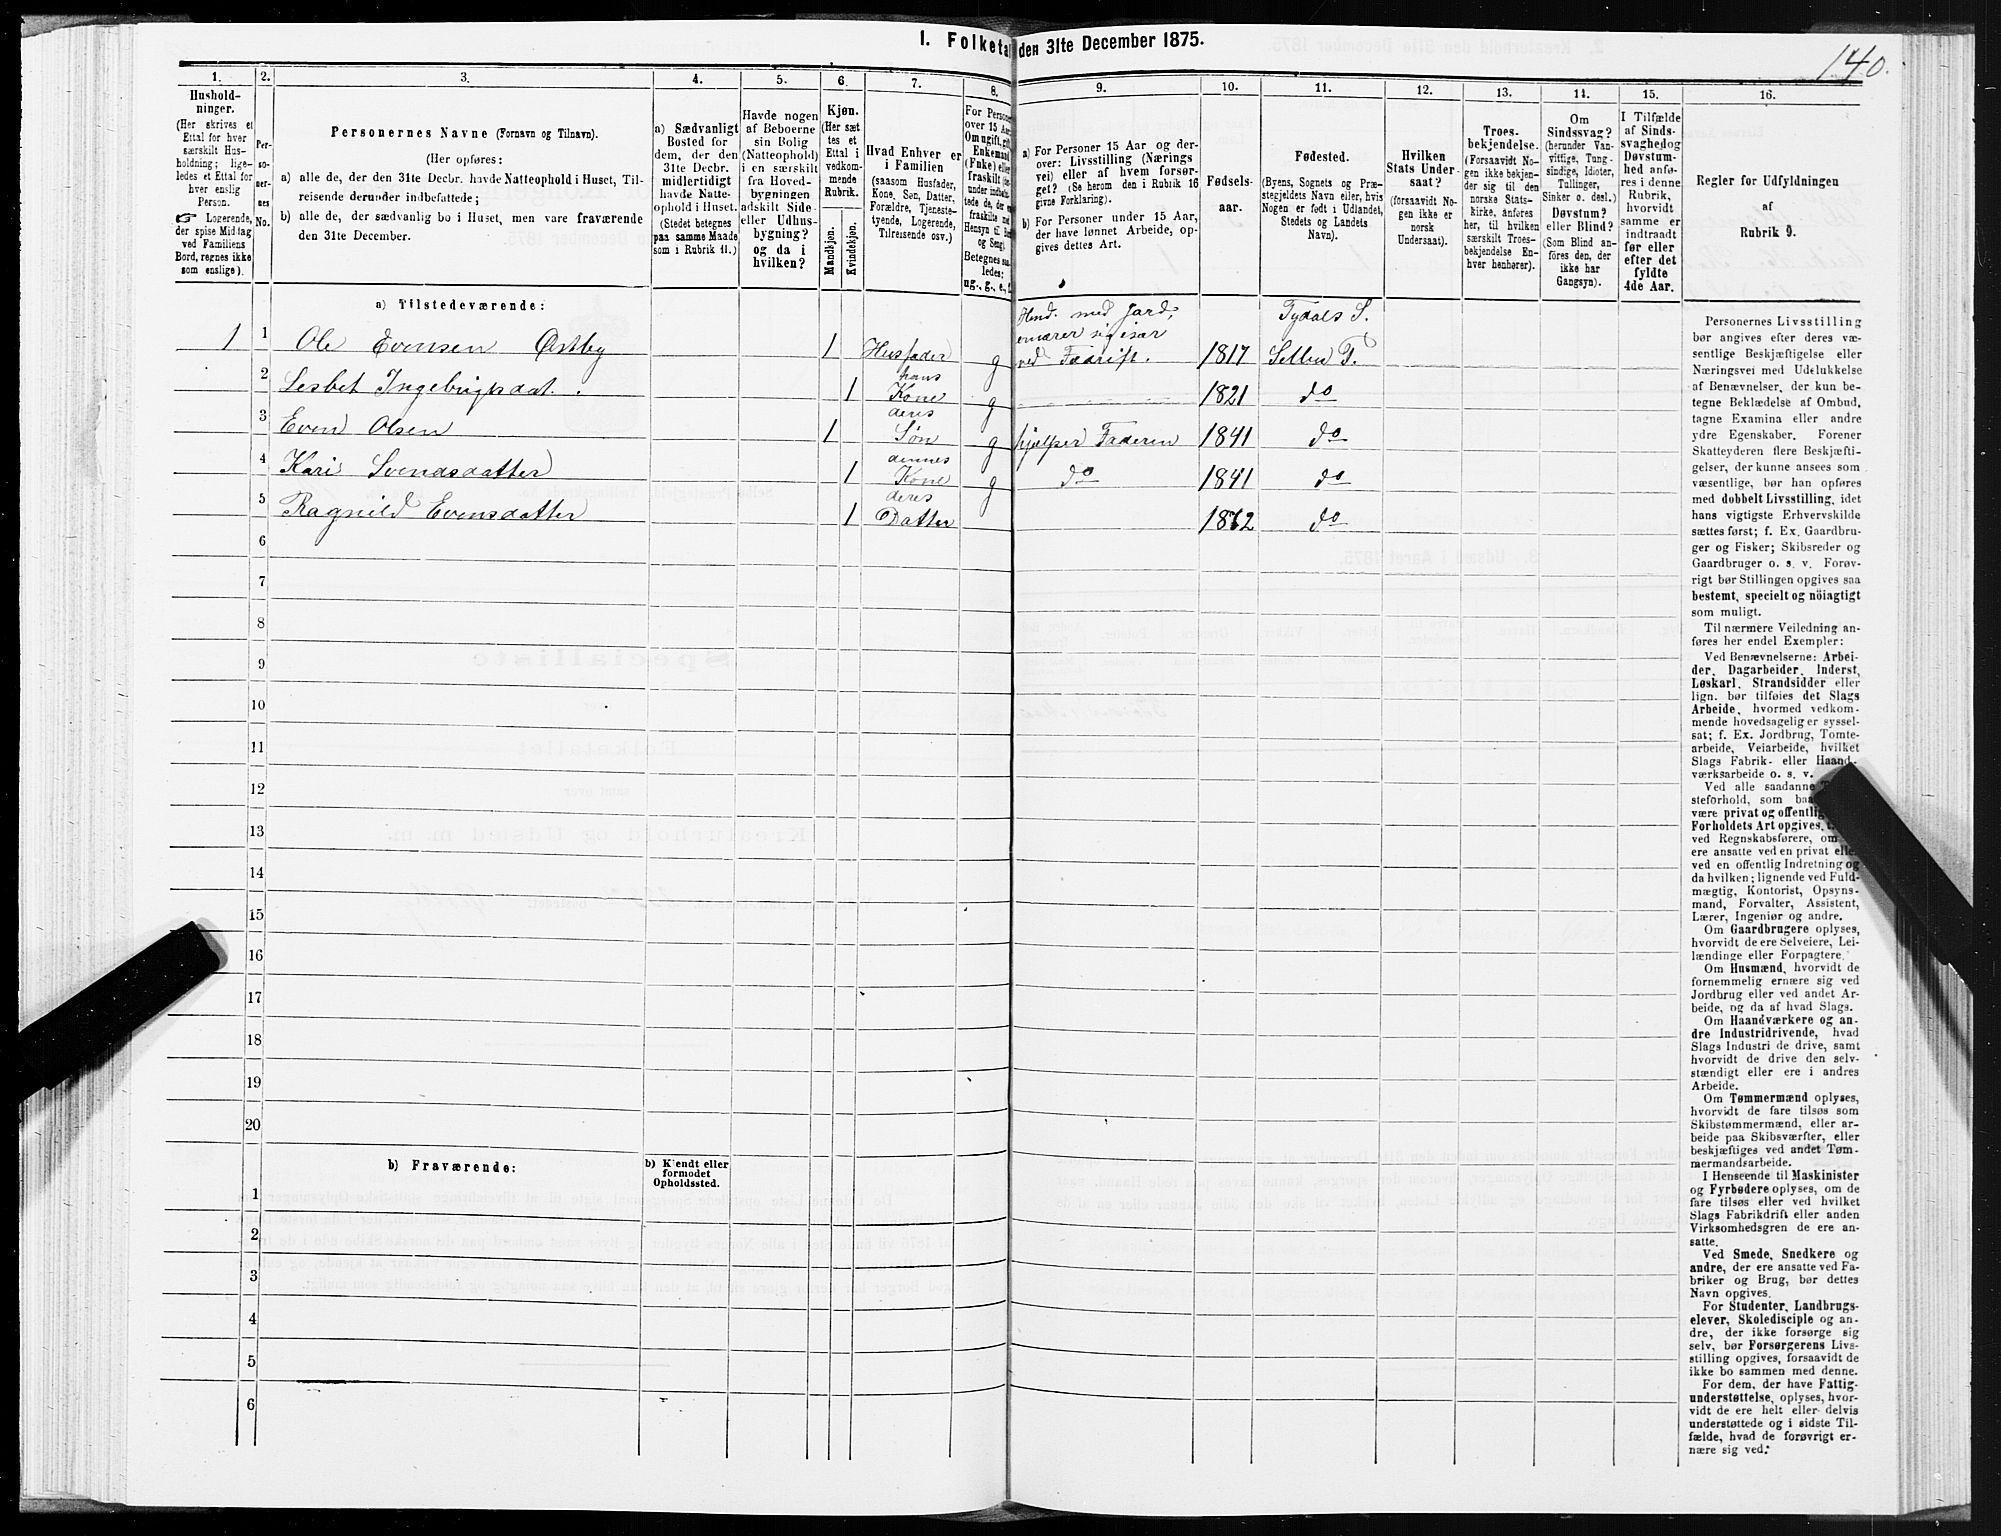 1. Folketa den 31te December 1875.
140.
1.
2.
3.
4.
5.
6.
7.
8.
9.
10.
11.
12.
13.
14.
15.
16.
Hushold-
ninger.
(Her skrives et
Ettal for hver
særskilt Hus-
holdning; lige-
ledes et Ettal for
hver enslig
Person.
☞ Logerende,
der spise Middag
ved Familiens
Bord, regnes ikke
som enslige).
Per-
so-
ner-
nes
No.
Personernes Navne (Fornavn og Tilnavn).
(Her opføres:
a) alle de, der den 31te Decbr. havde Natteophold i Huset, Til-
reisende derunder indbefattede;
b) alle de, der sædvanlig bo i Huset, men vare fraværende
den 31te December.
a) Sædvanligt
Bosted for
dem, der den
31te Decbr.
midlertidigt
havde Natte-
ophold i Huset.
(Stedet betegnes
paa samme Maade
som i Rubrik 11.)
Havde nogen
af Beboerne
sin Bolig
(Natteophold)
i en særskilt
fra Hoved-
bygningen
adskilt Side-
eller Udhus-
bygning?
og da i
hvilken?
Kjøn.
(Her sæt
tes et
Ettal i
vedkom-
mende
Rubrik.
Mandkjøn.
Kvindekjøn.
Hvad Enhver er
i Familien
(saasom Husfader,
Kone, Søn, Datter,
Forældre, Tjeneste-
tyende, Logerende,
Tilreisende osv.)
For Persone
over 15 Aar
Om ugift, gift,
Enkemand
(Enke) eller
fraskilt
a) For Personer 15 Aar og der-
over: Livsstilling (Nærings
vei) eller af hvem forsør-
get? (Se herom den i Rubrik 16
givne Forklaring).
b) For Personer under 15 Aar,
der have lønnet Arbeide, op-
gives dettes Art.
Fødsels-
aar.
Fødested.
(Byens, Sognets og Præ-
stegjeldets Navn eller, hvis
Nogen er født i Udlandet,
Stedets og Landets
Navn).
Hvilken
Stats Under-
saat?
(forsaavidt No-
gen ikke er
norsk
Undersaat).
Troes-
bekjendelse.
(Forsaavidt No-
gen ikke bekjen-
der sig til den
norske Stats-
kirke, anføres
her, til hvilken
særskilt Troes-
bekjendelse En-
hver henhører).
Om
Sindssvag?
(herunder Van-
vittige, Tung-
sindige, Idioter,
Tullinger,
Sinker o. desl.)
Døvstum?
eller Blind?
(Som Blind an-
føres den, der
ikke har
Gangsyn).
I Tilfælde
af Sinds-
svaghed og
Døvstum-
hed anfø-
res i denne
Rubrik,
hvorvidt
samme er
indtraadt
før eller
efter det
fyldte
4de Aar.
Regler for Udfyldningen
af
Rubrik 9.
a) Tilstedeværende:
1 1 Ole Evensen Østby 1 Husfader g Husd. med Jord, ernærer sig især ved Fædrift. 1817 Tydals S. Selbu P.
2 Lesbet Ingebrigtsdat. 1 hans Kone g 1821 do
3 Even Olsen 1 deres Søn g hjælper Faderen 1841 do
4 Kari Svendsdatter 1 dennes Kone g do 1841 do
5 Ragnild Evensdatter 1 deres Datter 1872 do
6
7
8
9
10
11
12
13
14
15
16
17
18
19
20
b) Fraværende:
b) Kjendt eller
formodet
Opholdssted.
1
2
3
4
5
6
Personernes Livsstilling
bør angives efter deres væ-
sentlige Beskjæftigelse eller
Næringsvei med Udelukkelse
af Benævnelser, der kun be-
tegne Beklædelse af Ombud,
tagne Examina eller andre
ydre Egenskaber. Forener
Skatteyderen flere Beskjæfti-
gelser, der kunne ansees som
væsentlige, bør han opføres
med dobbelt Livsstilling, idet
hans vigtigste Erhvervskilde
sættes først; f. Ex. Gaardbru-
ger og Fisker; Skibsreder og
Gaardbruger o. s. v. Forøv-
rigt bør Stillingen opgives saa
bestemt, specielt og nöiagtigt
som muligt.
Til nærmere Veiledning an-
føres her endel Exempler:
Ved Benævnelserne: Arbei-
der, Dagarbeider, Inderst,
Løskarl, Strandsidder eller
lign. bør tilføies det Slags
Arbeide, hvormed vedkom-
mende hovedsagelig er syssel-
sat; f. Ex. Jordbrug, Tomte-
arbeide, Veiarbeide, hvilket
Slags Fabrik- eller Haand-
værksarbeide o. s. v.
Ved alle saadanne
steforhold, som
være privat og offentlig
Forholdets Art opgives,
ved Regnskabsførere, om
ere ansatte ved en privat eller
ved en offentlig Indretning og
da hvilken; lignende ved Fuld-
mægtig, Kontorist, Opsyns-
mand, Forvalter, Assistent,
Lærer, Ingeniør og andre.
Om Gaardbrugere oplyses,
hvorvidt de ere Selveiere, Lei-
lændinge eller Forpagtere.
Om Husmænd, hvorvidt de
fornemmelig ernære sig ved
Jordbrug eller ved andet Ar-
beide, og da af hvad Slags.
Om Haandværkere og an-
dre Industridrivende, hvad
Slags Industri de drive, samt
hvorvidt de drive den selv-
stændigt eller ere i andres
Arbeide.
Om Tømmermænd oplyses,
hvorvidt de fare tilsøs som
Skibstømmermænd, eller ar-
beide paa Skibsværfter, eller
beskjæftiges ved andet Tøm-
mermandsarbeide.
I Henseende til Maskinister
og Fyrbødere oplyses, om de
fare tilsøs eller ved hvilket
Slags Fabrikdrift eller anden
Virksomhedsgren de ere an-
satte.
Ved Smede, Snedkere og
andre, der ere ansatte ved Fa-
briker og Brug, bør dettes
Navn opgives.
For Studenter, Landbrugs-
elever, Skoledisciple og an-
dre, der ikke forsørge sig
selv, bør Forsørgerens Livs-
stilling opgives, forsaavidt de
ikke bo sammen med denne.
For dem, der have Fattig-
understøttelse, oplyses, hvor-
vidt de ere helt eller delvis
understøttede og i sidste Til-
fælde, hvad de forøvrigt er-
nære sig ved.